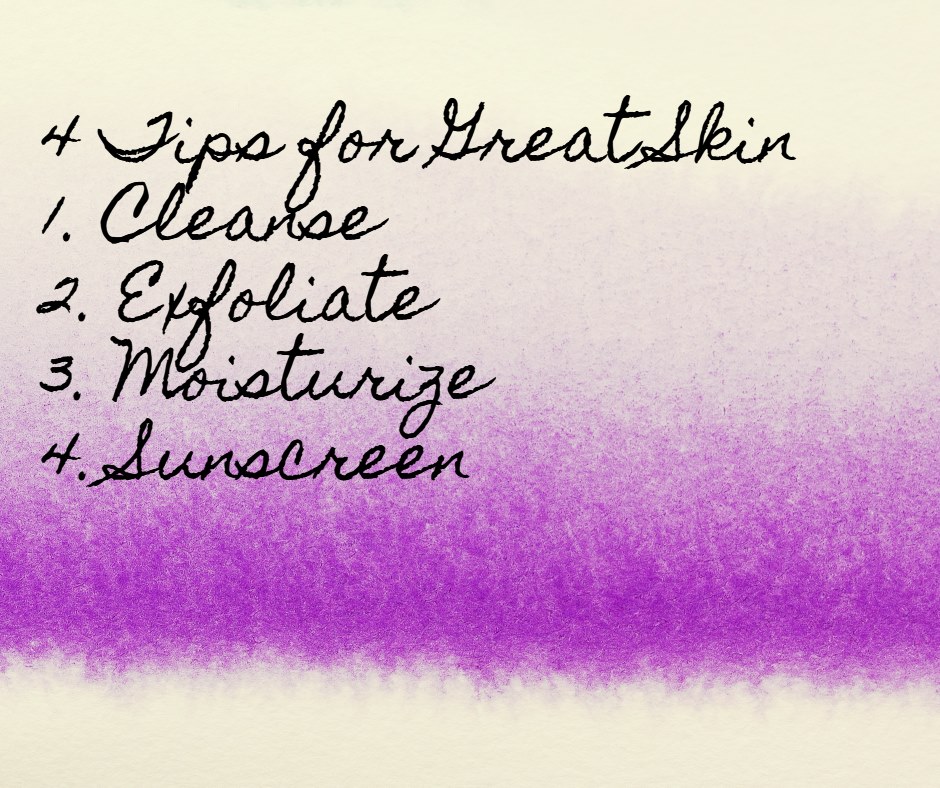 4 Tips for Great Skin
1. Cleanse
2. Exfoliate
3. Moisturize
4. Sunscreen